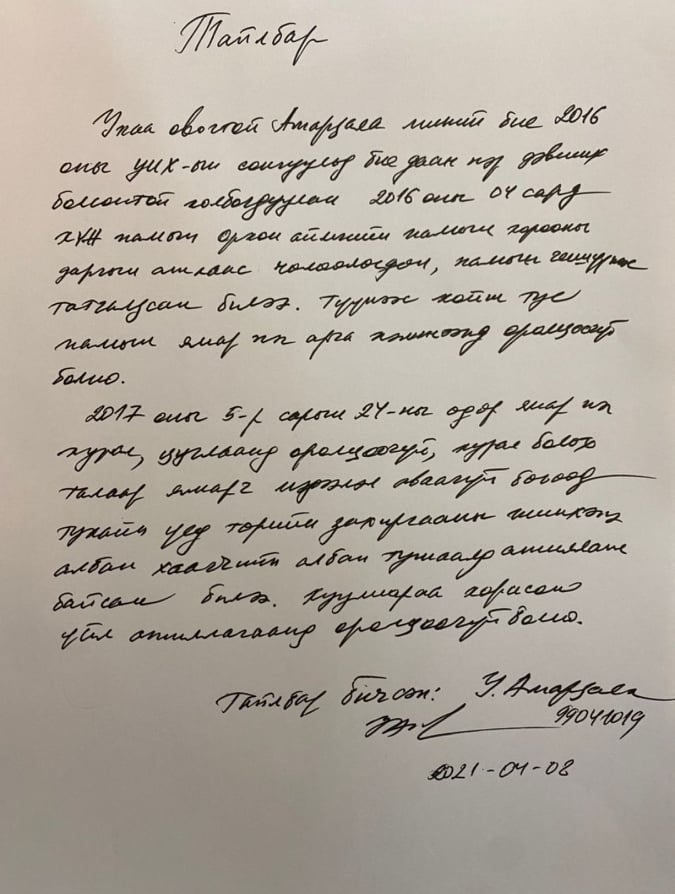 Тайлбар
Унаа овогтой Амарзаяа миний бие 2016
оны УИХ-ын сонгуульд бие даан нэр дэвших
болсонтой холбогдуулан 2016 оны 04 сард
ХҮН намын Орхон аймгийн намын хорооны
даргын ажлаас чөлөөлөгдөн, намын гишүүнээс
татгалзсан билээ. Түүнээс хойш тус
намын ямар нэг арга хэмжээнд оролцоогүй
болно.
2017 оны 5-р сарын 24-ны өдөр ямар нэг
хурал, цуглаанд оролцоогүй, хурал болох
талаар ямарч мэдээлэл аваагүй бөгөөд
тухайн үед төрийн захиргааны жинхэнэ
албан хаагчийн албан тушаалд ажиллаж
байсан билээ. Хуулиараа хориосон
үйл ажиллагаанд оролцоогүй болно.
Тайлбар бичсэн: У. Амарзаяа
99041019
2021-04-08